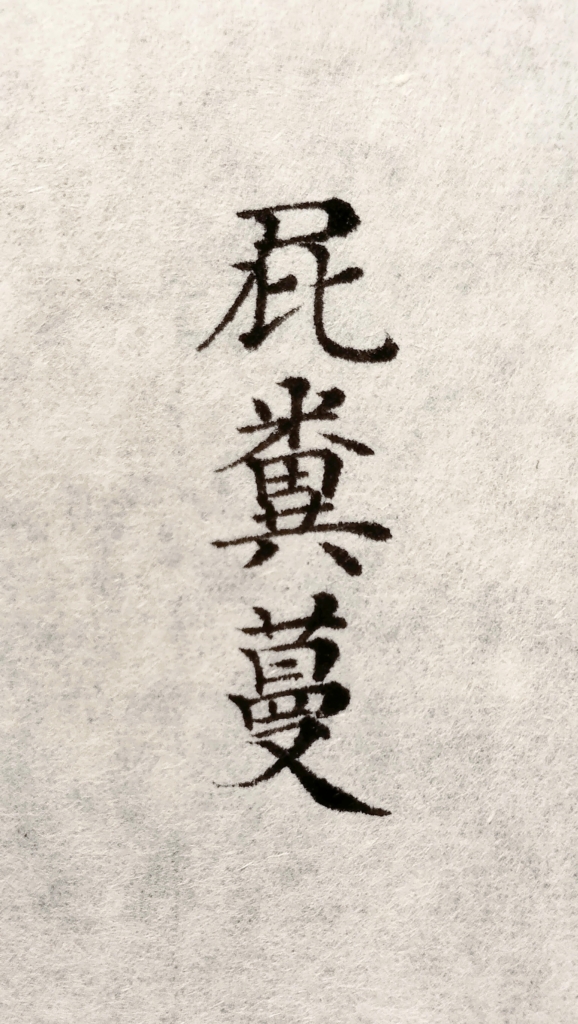 屁糞蔓